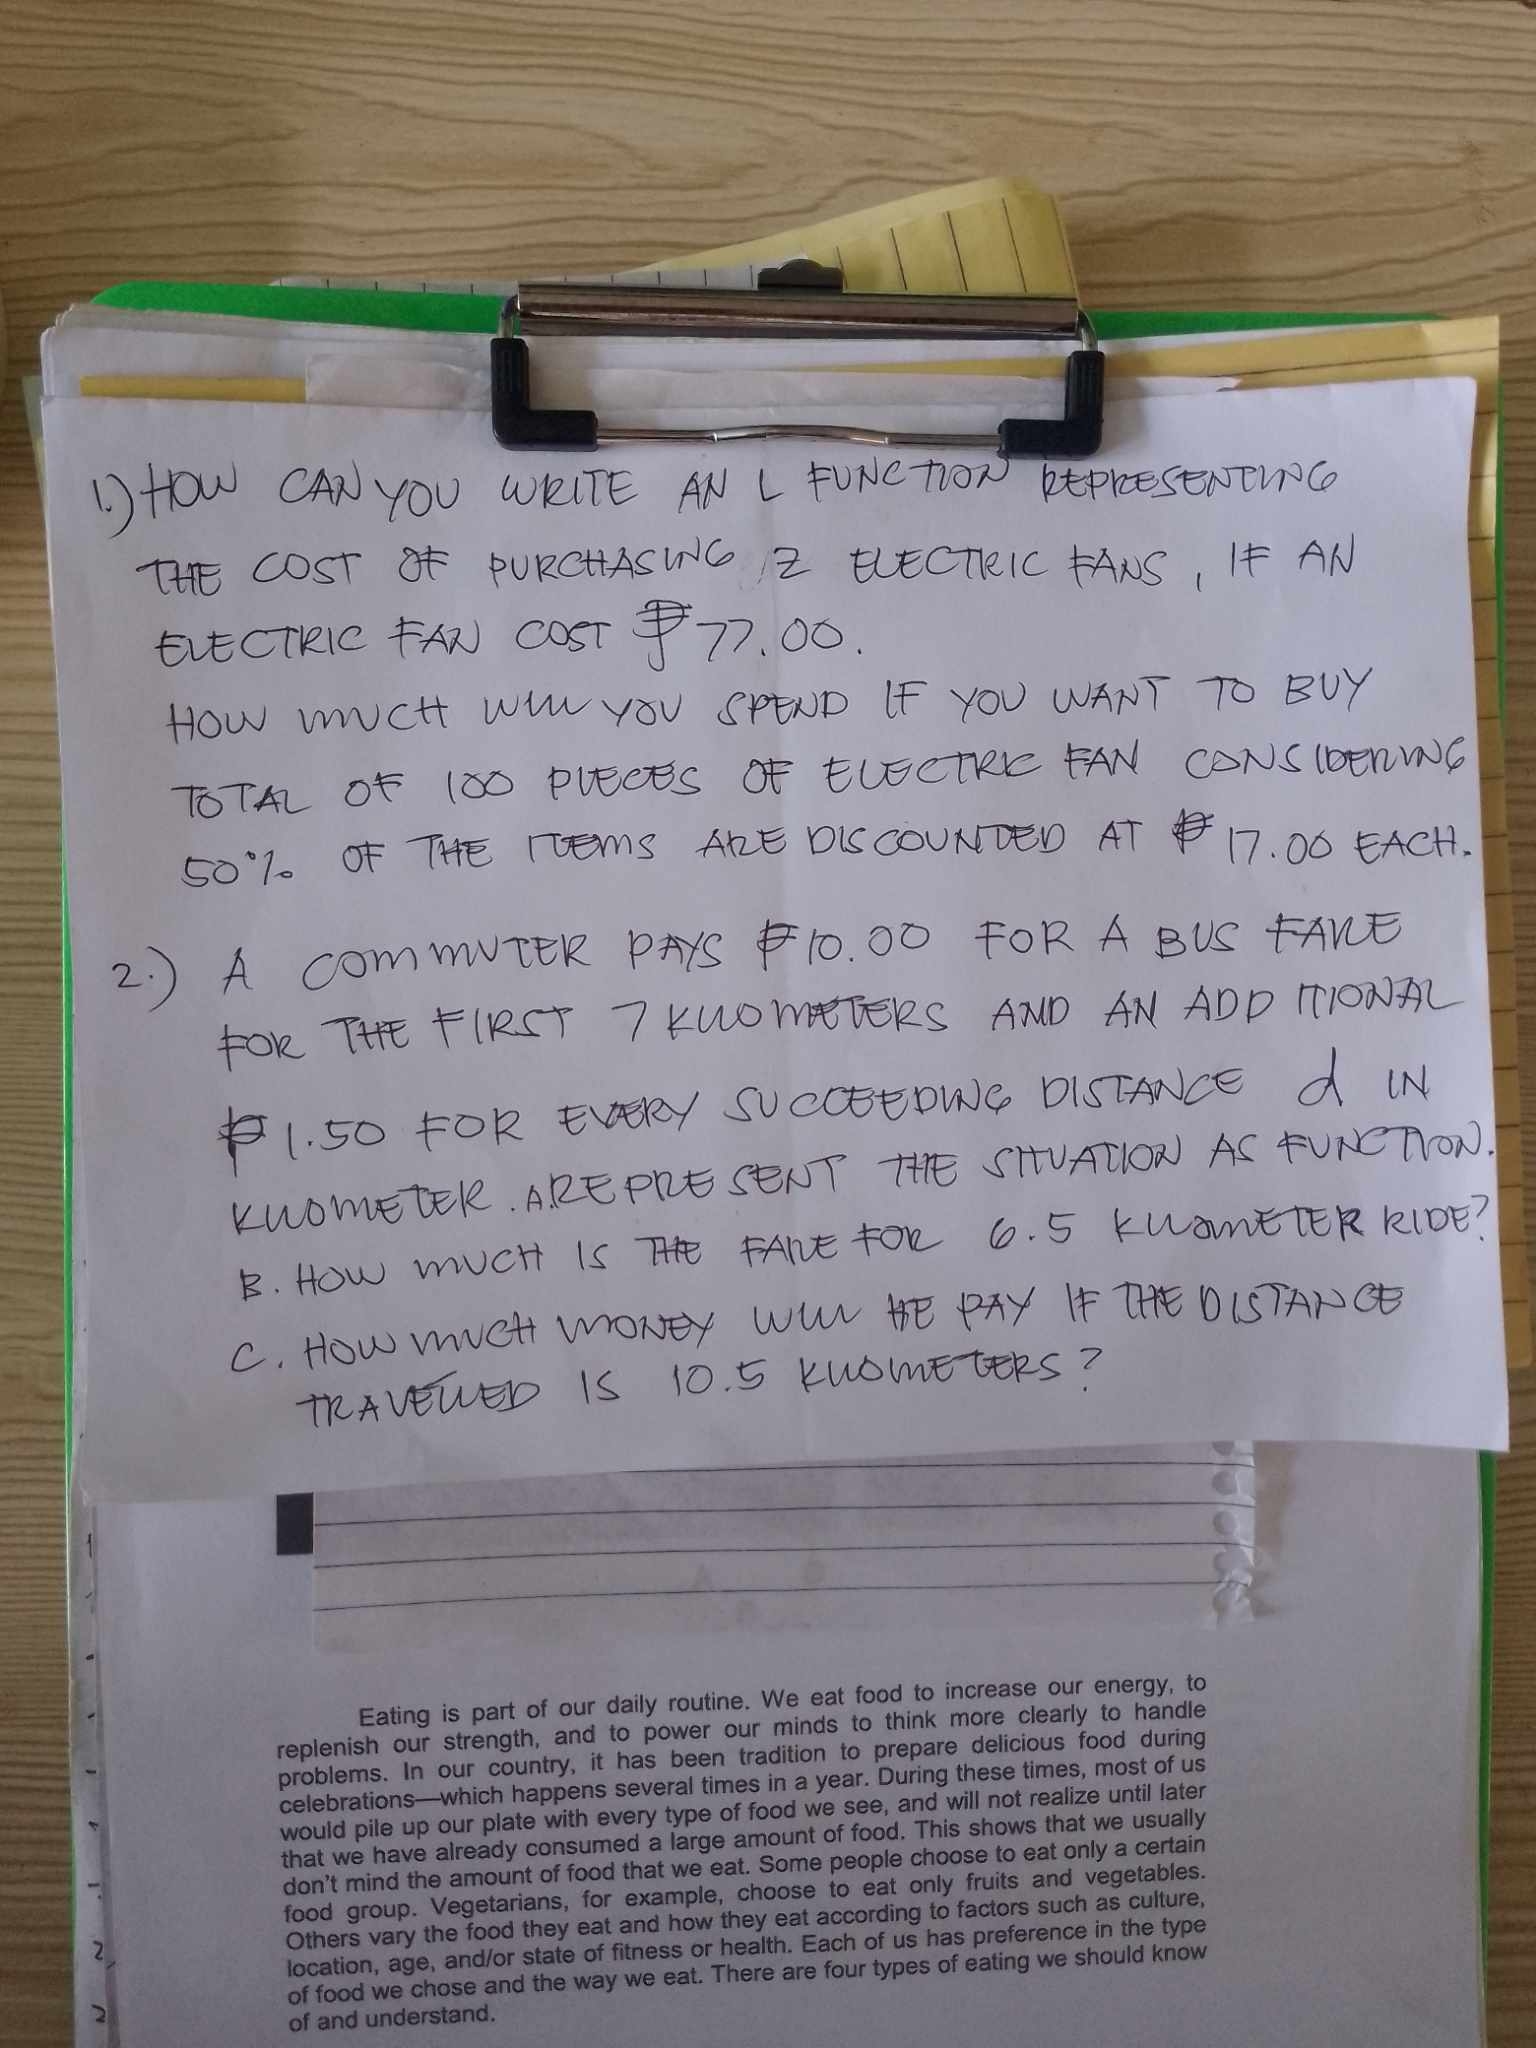 1.) HOW CAN YOU WRITE AN L FUNCTION REPRESENTING
THE COST OF PURCHASING Z ELECTRIC FANS, IF AN
ELECTRIC FAN COST ₱77.00.
HOW MUCH WILL YOU SPEND IF YOU WANT TO BUY
TOTAL OF 100 PIECES OF ELECTRIC FAN CONSIDERING
50% OF THE ITEMS ARE DISCOUNTED AT ₱17.00 EACH.
2.) A COMMUTER PAYS ₱10.00 FOR A BUS FARE
FOR THE FIRST 7 KILOMETERS AND AN ADDITIONAL
₱1.50 FOR EVERY SUCCEEDING DISTANCE d IN
KILOMETER. A. REPRESENT THE SITUATION AS FUNCTION.
B. HOW MUCH IS THE FARE FOR 6.5 KILOMETER RIDE?
C. HOW MUCH MONEY WILL HE PAY IF THE DISTANCE
TRAVELLED IS 10.5 KILOMETERS?
Eating is part of our daily routine. We eat food to increase our energy, to
replenish our strength, and to power our minds to think more clearly to handle
problems. In our country, it has been tradition to prepare delicious food during
celebrations—which happens several times in a year. During these times, most of us
would pile up our plate with every type of food we see, and will not realize until later
that we have already consumed a large amount of food. This shows that we usually
don't mind the amount of food that we eat. Some people choose to eat only a certain
food group. Vegetarians, for example, choose to eat only fruits and vegetables.
Others vary the food they eat and how they eat according to factors such as culture,
location, age, and/or state of fitness or health. Each of us has preference in the type
of food we chose and the way we eat. There are four types of eating we should know
of and understand.